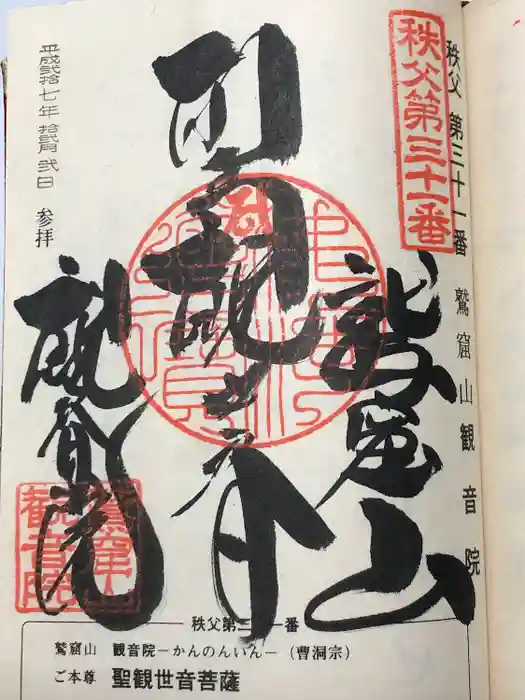 秩父第三十一番
秩父 第三十一番 鷲窟山観音院
鷲窟山
聖観世音
観音院
平成弐拾七年 拾弐月 弐日 参拝
鷲窟山
観音院
秩父第三十一番
鷲窟山 観音院－かんのんいん－（曹洞宗）
ご本尊 聖観世音菩薩